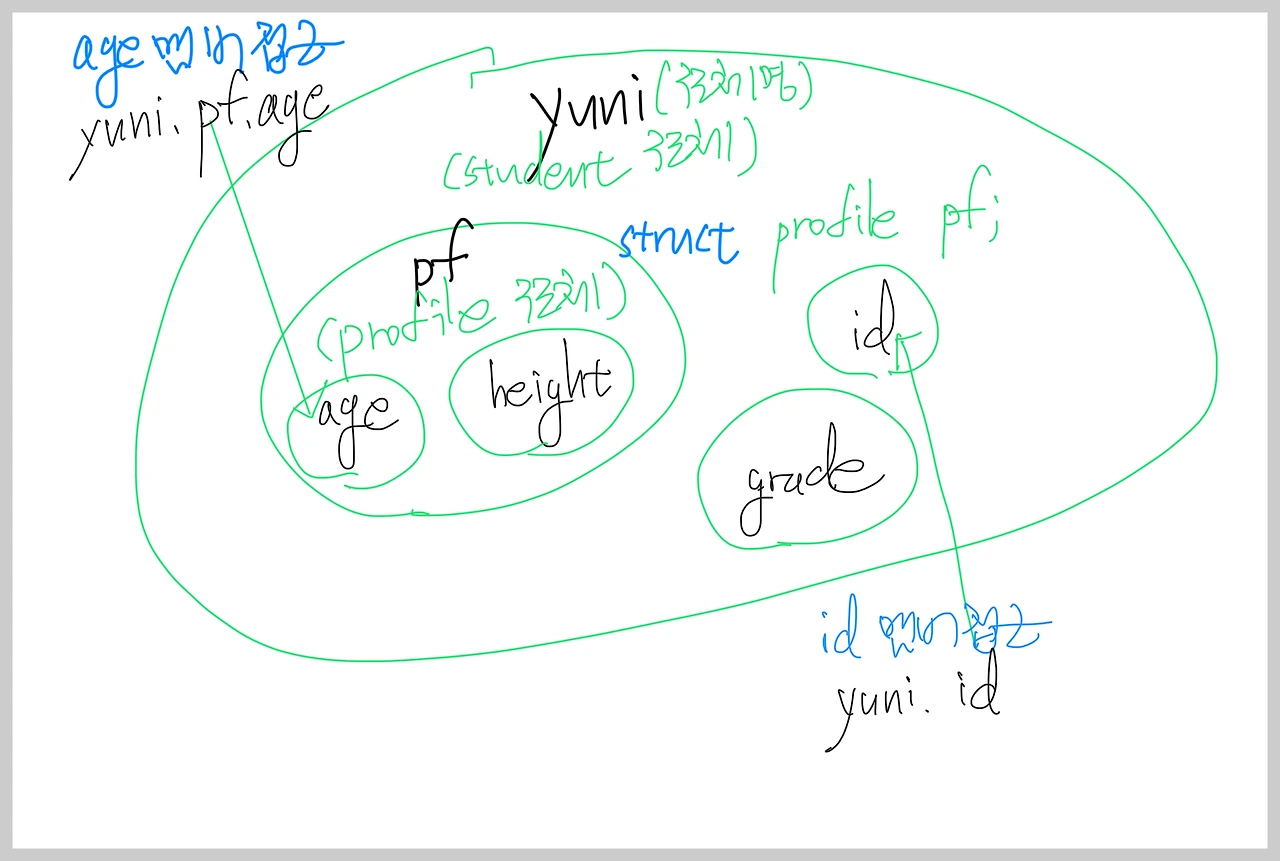 age 멤버 접근
yuni. pf.age
yuni (구조체명)
(student 구조체)
struct profile pf;
pf
(profile 구조체)
id
age
height
grade
id 멤버 접근
yuni. id